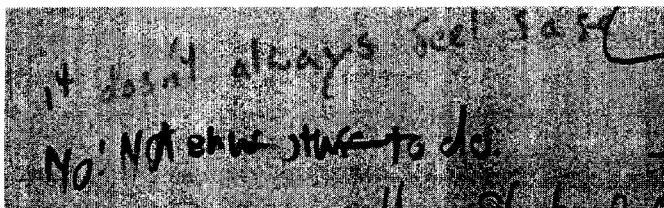 it dosn't always feel safe
No! Not enuf stuff to do.